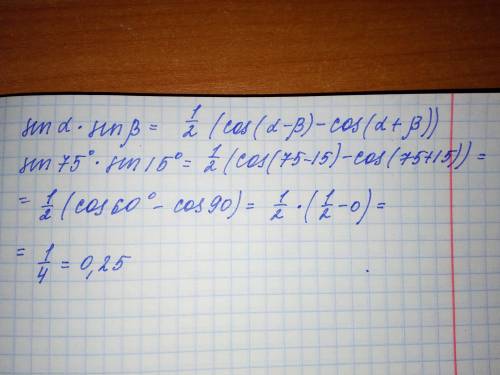 sin α · sin β = 1/2 (cos(α-β) - cos(α+β))
sin 75° · sin 15° = 1/2 (cos(75-15) - cos(75+15)) =
= 1/2 (cos 60° - cos 90) = 1/2 · (1/2 - 0) =
= 1/4 = 0,25